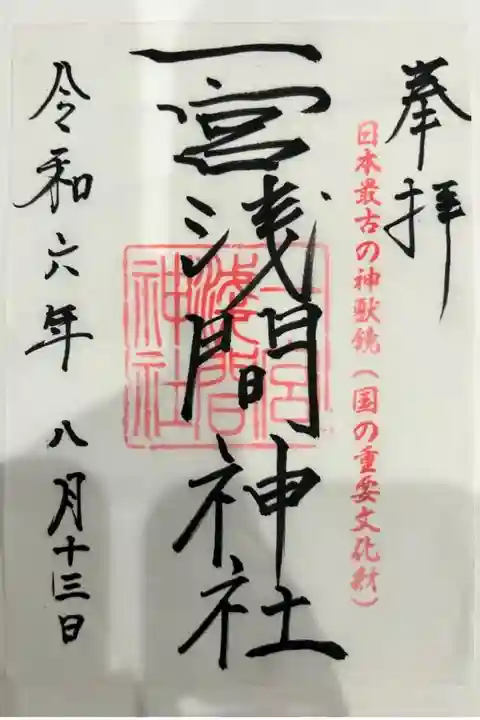 奉拝
日本最古の神獣鏡(国の重要文化財)
一宮浅間神社
一宮
浅間
神社
令和六年八月十三日